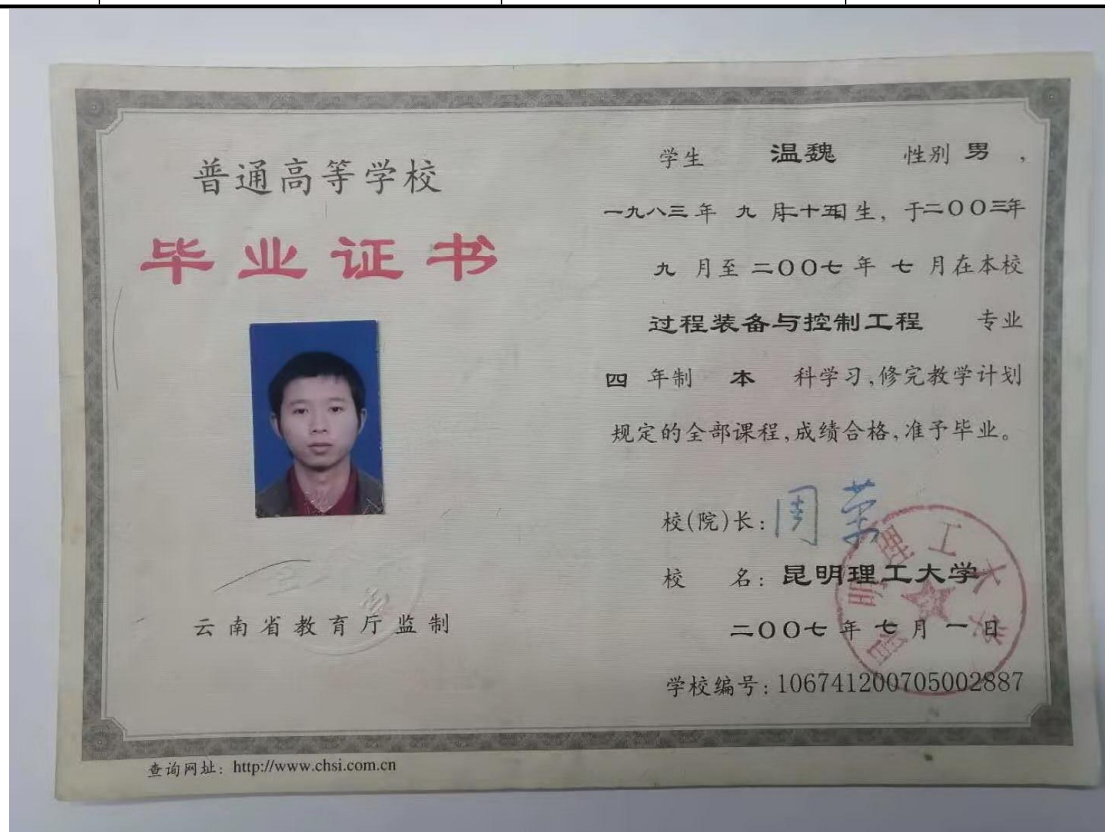 普通高等学校
毕业证书
云南省教育厅监制
学生 温魏 性别 男 ，
一九八三 年 九 月二十五日生，于二〇〇三年
九 月至 二〇〇七 年 七 月在本校
过程装备与控制工程 专业
四 年制 本 科学习，修完教学计划
规定的全部课程，成绩合格，准予毕业。
校(院)长：周荣
校 名：昆明理工大学
二〇〇七 年 七 月 一 日
学校编号：106741200705002887
昆明理工大学
查询网址：http://www.chsi.com.cn